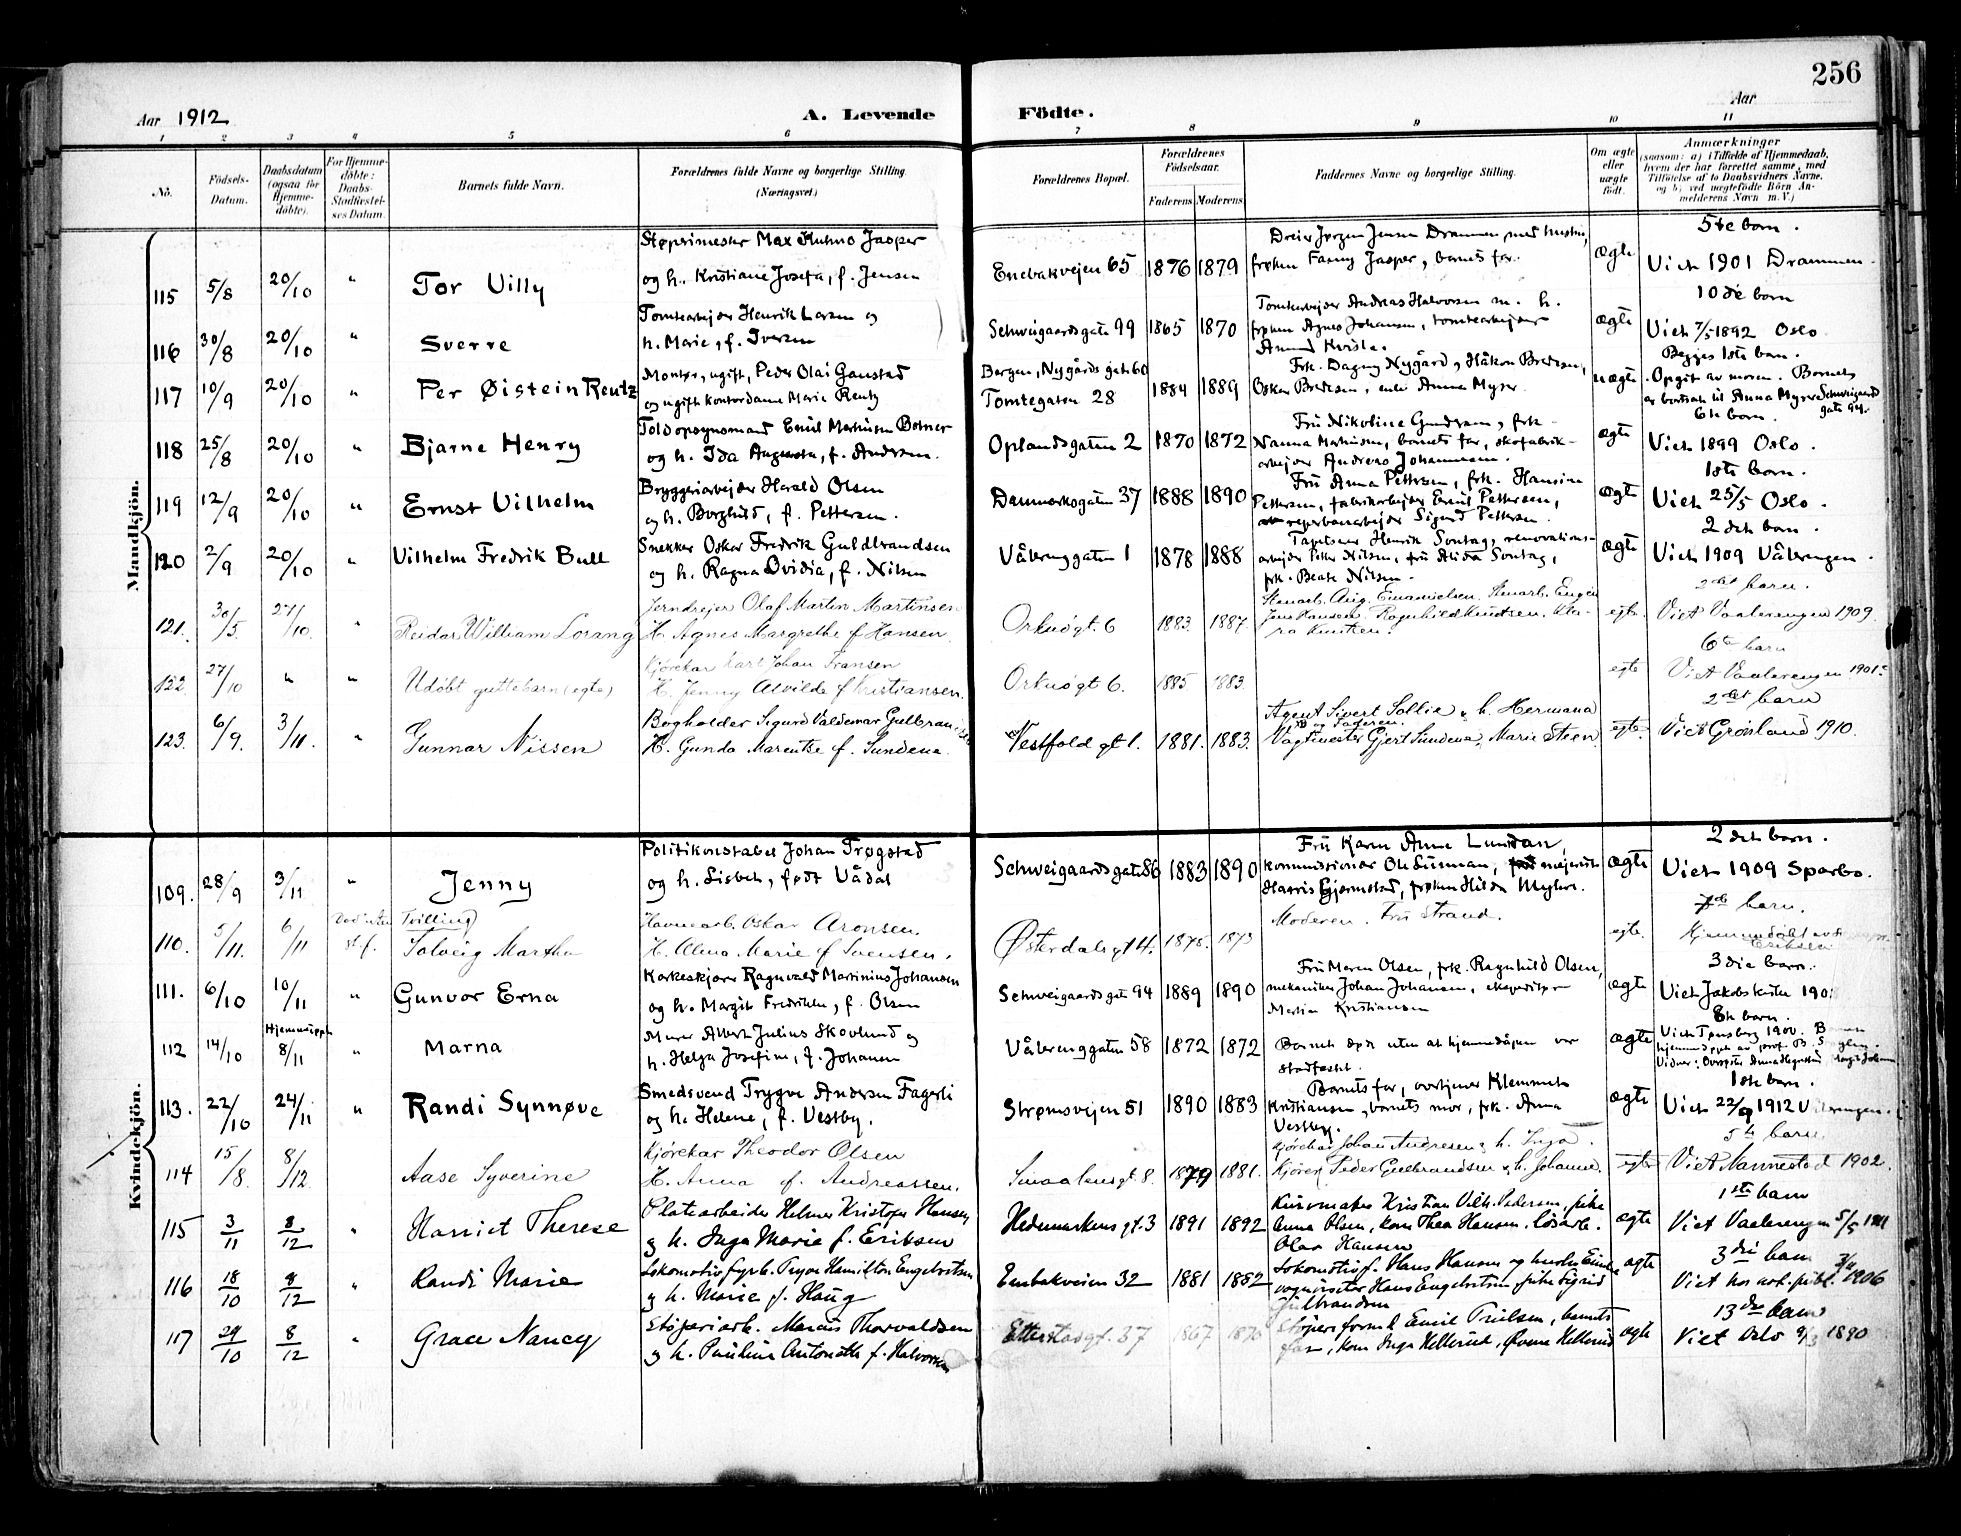 256
Aar 1912
A. Levende Födte.
Aar
1 2 3 4 5 6 7 8 9 10 11
No.
Födsels-Datum.
Daabsdatum (ogsaa for Hjemme-döbte).
For Hjemme-döbte: Daabs-Stadfæstel-ses Datum.
Barnets fulde Navn.
Forældrenes fulde Navne og borgerlige Stilling. (Næringsvei.)
Forældrenes Bopæl.
Forældrenes Födselsaar.
Faderens Moderens
Faddernes Navne og borgerlige Stilling.
Om ægte eller uægte födt.
Anmærkninger
(saasom: a) i Tilfælde af Hjemmedaab, hvem der har forrettet samme, med Tilföielse af to Daabsvidners Navne, og b) ved uægtefödte Börn An-melderens Navn m. V.)
Mandkjön.
115 5/8 20/10 " Tor Villy
Støperimester Max Kuhno Jasper
og h. Kristiane Josefa, f. Jensen
Enebakveien 65 1876 1879
Dreier Jørgen Jensen Drammen med hustru,
frøken Fanny Jasper, barnets far.
ægte
5te barn.
Viet 1901 Drammen.
116 30/8 20/10 " Sverre
Tomtearbejder Henrik Larsen og
h. Marie, f. Iversen
Schweigaardsgaten 99 1865 1870
Tomtearbejder Andreas Halvorsen m. h.
frøken Agnes Johansen, tomtearbejder
Amund Kvisla.
ægte
10de barn
Viet 7/5 1892 Oslo
117 10/9 20/10 " Per Øistein Reutz
Montør, ugift, Peder Olai Gaustad
og ugift kontordame Marie Reutz
Bergen, Nygårds gate 60
Tomtegaten 28 1884 1889
Frk. Dagny Nygård, Håkon Bredesen,
Oskar Bredesen, enke Anna Myrer
uægte
Begges 1ste barn.
Opgit av moren. Barnet
er bortsatt til Anna Myrer Schweigaards
gate 94.
118 25/8 20/10 " Bjarne Henry
Toldopsynsmand Emil Martinsen Botner
og h. Ida Augusta, f. Andersen.
Oplandsgaten 2 1870 1872
Fru Nikoline Gundersen, frk.
Nanna Martinsen, barnets far, skofabrik-
arbejder Andreas Johannesen.
ægte
6te barn.
Viet 1899 Oslo.
119 12/9 20/10 " Ernst Vilhelm
Bryggeriarbejder Harald Olsen
og h. Borghild, f. Pettersen.
Danmarksgaten 37 1888 1890
Fru Anna Pettersen, frk. Hansine
Pettersen, fabrikarbejder Emil Pettersen,
reperbanearbejder Sigurd Pettersen.
ægte
1ste barn.
Viet 25/5 Oslo.
120 2/9 20/10 " Vilhelm Fredrik Bull
Snekker Oskar Fredrik Guldbrandsen
og h. Ragna Ovidia, f. Nilsen
Vålerenggaten 1 1878 1888
Tapetserer Henrik Sontag, renovations-
arbejder Peter Nilsen, fru Alida Sontag,
frk. Beate Nilsen.
ægte
2det barn.
Viet 1909 Vålerengen.
121. 30/5. 27/10. " Reidar William Lorang
Jerndreier Olaf Martin Martinsen
H. Agnes Margrethe f. Hansen
Orknögt. 6 1883. 1887.
Stenarb. Aug. Emanuelsen, Stenarb. Eugen
Jens Hansen. Ragnhild Knutsen. Kla-
ra Knutsen.
egte.
2det barn.
Viet Vaalerengen 1909.
122. 27/10 " " Udöbt guttebarn (egte)
Kjörekar Karl Johan Fransen
H. Jenny Alvilde f. Kristiansen.
Orknögt 6. 1885 1883.
egte
6te barn
Viet Vaalerengen 1901.
123. 6/9. 3/11. " Gunnar Nissen
Bogholder Sigurd Valdemar Gulbrandsen
H. Gunda Marentse f. Sundena.
Vestfold gt 1. 1881. 1883.
Agent Sivert Sollie & h. Hermana
og Faderen.
Vagtmester Gjert Sundena, Marie Steen
egte.
2det barn
Viet Grønland 1910.
Kvindekjön.
109. 28/9 3/11 " Jenny
Politikonstabel Johan Trøgstad
og h. Lisbet, født Vådal
Schweigaardsgaten 86 1883 1890
Fru Karen Anna Lundan,
kommissionær Ole Lüsman, mejerist
Harris Gjermstad, frøken Hilda Myhre.
ægte
2det barn.
Viet 1909 Sparbo.
110. 5/11. 6/11 Död inden st.f. Tvilling
Solveig Martha
Havnearb. Oskar Aronsen.
H. Alma Marie f Svensen.
Østerdalsgt 4. 1875. 1873
Moderen. Fru Strand.
egte.
7de barn.
Hjemmedöbt av
Eriksen
111. 6/10 10/11 " Gunvor Erna
Korkeskjærer Ragnvald Martinius Johansen
og h. Margit Fredrikke, f. Olsen
Schweigaards gate 94 1889 1890
Fru Maren Olsen, frk. Ragnhild Olsen,
mekaniker Johan Johansen, ekspeditør
Martin Kristiansen
ægte
3die barn.
Viet Jakobs kirke 190
112 14/10 Hjemmedøpt 8/11 " Marna
Murer Albert Julius Skovlund og
h. Helga Josefine, f. Johansen
Vålerenggaten 58 1872 1872
Barnet døde uten at hjemmedåpen var
stadfestet.
ægte
8de barn.
Viet Tønsberg 1900.
hjemmedøpt av prof. B.
Vidner:
113. 22/10 24/11 " Randi Synnøve
Smedsvend Trygve Andersen Fagerli
og h. Helene, f. Vestby.
Strømsveien 51 1890 1883
Barnets far, overtjener Klemmet
Kristiansen, barnets mor, frk. Anna
Vestby.
ægte
1ste barn.
Viet 22/9 1912 Vålerengen.
114 15/8. 8/12. Aase Syverine
Kjörekar Theodor Olsen
H. Anna f. Andreassen.
Smaalensgt. 8. 1879 1881.
Kjörekar Johan Andresen & h. Inga.
Kjörek. Peder Gulbrandsen & h. Johanne.
egte
5te barn.
Viet Nannestad 1902.
115 3/11 8/12 " Harriet Therese
Platearbeider Helmer Kristofer Hansen
og h. Inga Marie f. Eriksen
Hedemarkens gt. 3 1891 1892
Kurvmaker Kristian Vilh. Pedersen, pike
Anna Olsen, kone Thea Hansen, lösarb.
Olav Hansen
ægte
1ste barn
Viet Vaalerengen 5/5 1911
116 18/10 8/12 " Randi Marie
Lokomotivfyrb. Trygve Hamilton Engebretsen
og h. Marie f. Haug
Enebakveien 32 1881 1882
Lokomotivf. Hans Hansen og hustru Emma
vognvisiter Hans Engebretsen pike Sigrid
Gulbrandsen
ægte
3die barn
Viet hos not. publ. 1906
117 29/10 8/12 " Grace Nancy
Støperiarb. Marius Thorvaldsen
og h. Pauline Antonette f. Halvorsen
Etterstadgt. 37 1867 1870
Støperiform. Emil Nielsen, barnets
far, kone Inga Hellerud, Øvena Hellerud
ægte
13de barn
Viet Oslo 9/3 1890